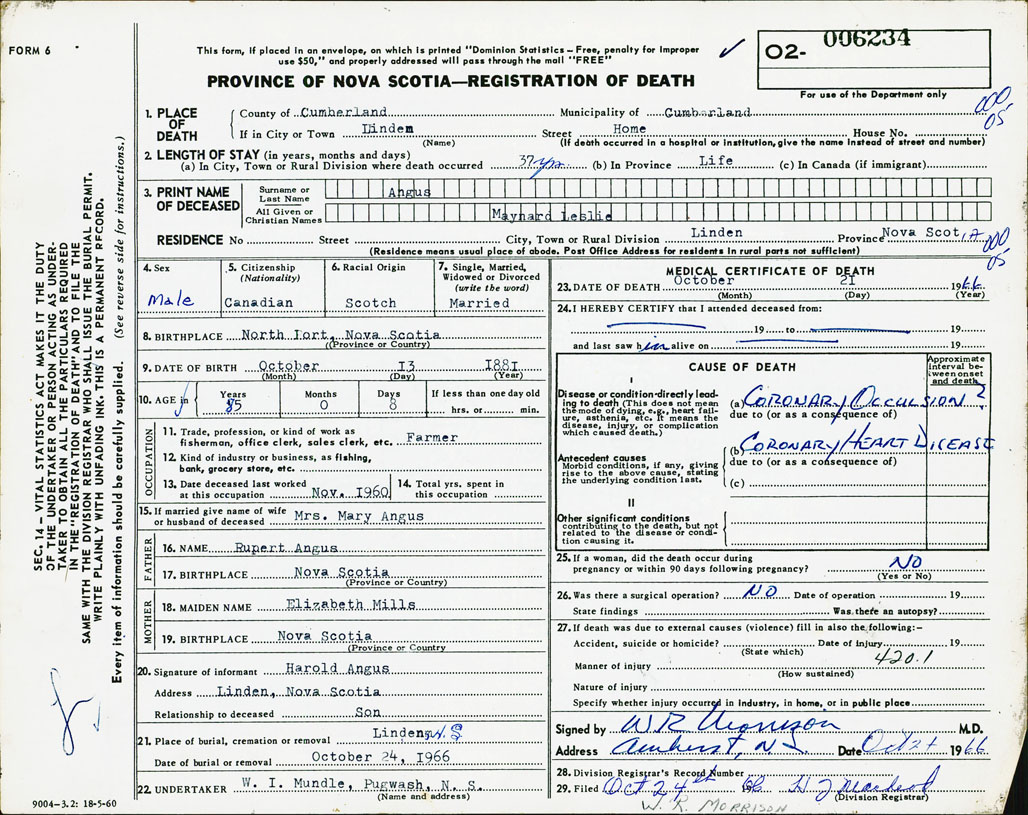 FORM 6
This form, if placed in an envelope, on which is printed "Dominion Statistics – Free, penalty for improper
use $50," and properly addressed will pass through the mail "FREE"
✓
O2- 006234
For use of the Department only
PROVINCE OF NOVA SCOTIA—REGISTRATION OF DEATH
000
05
1. PLACE OF DEATH
County of Cumberland Municipality of Cumberland
If in City or Town Linden Street Home House No.
(Name) (If death occurred in a hospital or institution, give the name instead of street and number)
2. LENGTH OF STAY (in years, months and days)
(a) In City, Town or Rural Division where death occurred 37 yrs (b) In Province Life (c) In Canada (if immigrant)
3. PRINT NAME OF DECEASED
Surname or Last Name Angus
All Given or Christian Names Maynard Leslie
RESIDENCE No Street City, Town or Rural Division Linden Province Nova Scotia
(Residence means usual place of abode. Post Office Address for residents in rural parts not sufficient)
000
05
4. Sex
Male
5. Citizenship
(Nationality)
Canadian
6. Racial Origin
Scotch
7. Single, Married,
Widowed or Divorced
(write the word)
Married
8. BIRTHPLACE North Iort, Nova Scotia
(Province or Country)
9. DATE OF BIRTH October I3 I88I
(Month) (Day) (Year)
10. AGE in
Years Months Days If less than one day old
85 0 8 hrs. or min.
OCCUPATION
11. Trade, profession, or kind of work as
fisherman, office clerk, sales clerk, etc. Farmer
12. Kind of industry or business, as fishing,
bank, grocery store, etc.
13. Date deceased last worked
at this occupation Nov. I960
14. Total yrs. spent in
this occupation
15. If married give name of wife
or husband of deceased Mrs. Mary Angus
FATHER
16. NAME Rupert Angus
17. BIRTHPLACE Nova Scotia
(Province or Country)
MOTHER
18. MAIDEN NAME Elizabeth Mills
19. BIRTHPLACE Nova Scotia
(Province or Country
20. Signature of informant Harold Angus
Address Linden, Nova Scotia
Relationship to deceased Son
21. Place of burial, cremation or removal Linden, N.S
Date of burial or removal October 24, 1966
22. UNDERTAKER W. I. Mundle, Pugwash, N. S.
(Name and address)
MEDICAL CERTIFICATE OF DEATH
23. DATE OF DEATH October 2I 1966
(Month) (Day) (Year)
24. I HEREBY CERTIFY that I attended deceased from:
19 to 19
and last saw him alive on 19
CAUSE OF DEATH
Approximate
interval be-
tween onset
and death
I
Disease or condition directly lead-
ing to death (This does not mean
the mode of dying, e.g., heart fail-
ure, asthenia, etc. It means the
disease, injury, or complication
which caused death.)
(a) CORONARY OCCULSION ?
due to (or as a consequence of)
(b) CORONARY HEART DICEASE
Antecedent causes
Morbid conditions, if any, giving
rise to the above cause, stating
the underlying condition last.
due to (or as a consequence of)
(c)
II
Other significant conditions
contributing to the death, but not
related to the disease or condi-
tion causing it.
25. If a woman, did the death occur during
pregnancy or within 90 days following pregnancy? NO
(Yes or No)
26. Was there a surgical operation? NO Date of operation 19
State findings Was there an autopsy?
27. If death was due to external causes (violence) fill in also the following:–
Accident, suicide or homicide? Date of injury 19
(State which)
420.1
Manner of injury
(How sustained)
Nature of injury
Specify whether injury occurred in industry, in home, or in public place
Signed by W R Morrison M.D.
Address Amherst, N.S. Date Oct 24 1966
28. Division Registrar's Record Number
29. Filed Oct 24th 66
(Division Registrar)
W. R. MORRISON
SEC. 14 – VITAL STATISTICS ACT MAKES IT THE DUTY
OF THE UNDERTAKER OR PERSON ACTING AS UNDER-
TAKER TO OBTAIN ALL THE PARTICULARS REQUIRED
IN THE "REGISTRATION OF DEATH" AND TO FILE THE
SAME WITH THE DIVISION REGISTRAR WHO SHALL ISSUE THE BURIAL PERMIT.
WRITE PLAINLY WITH UNFADING INK. THIS IS A PERMANENT RECORD.
Every item of information should be carefully supplied. (See reverse side for instructions.)
9004-3.2: 18-5-60